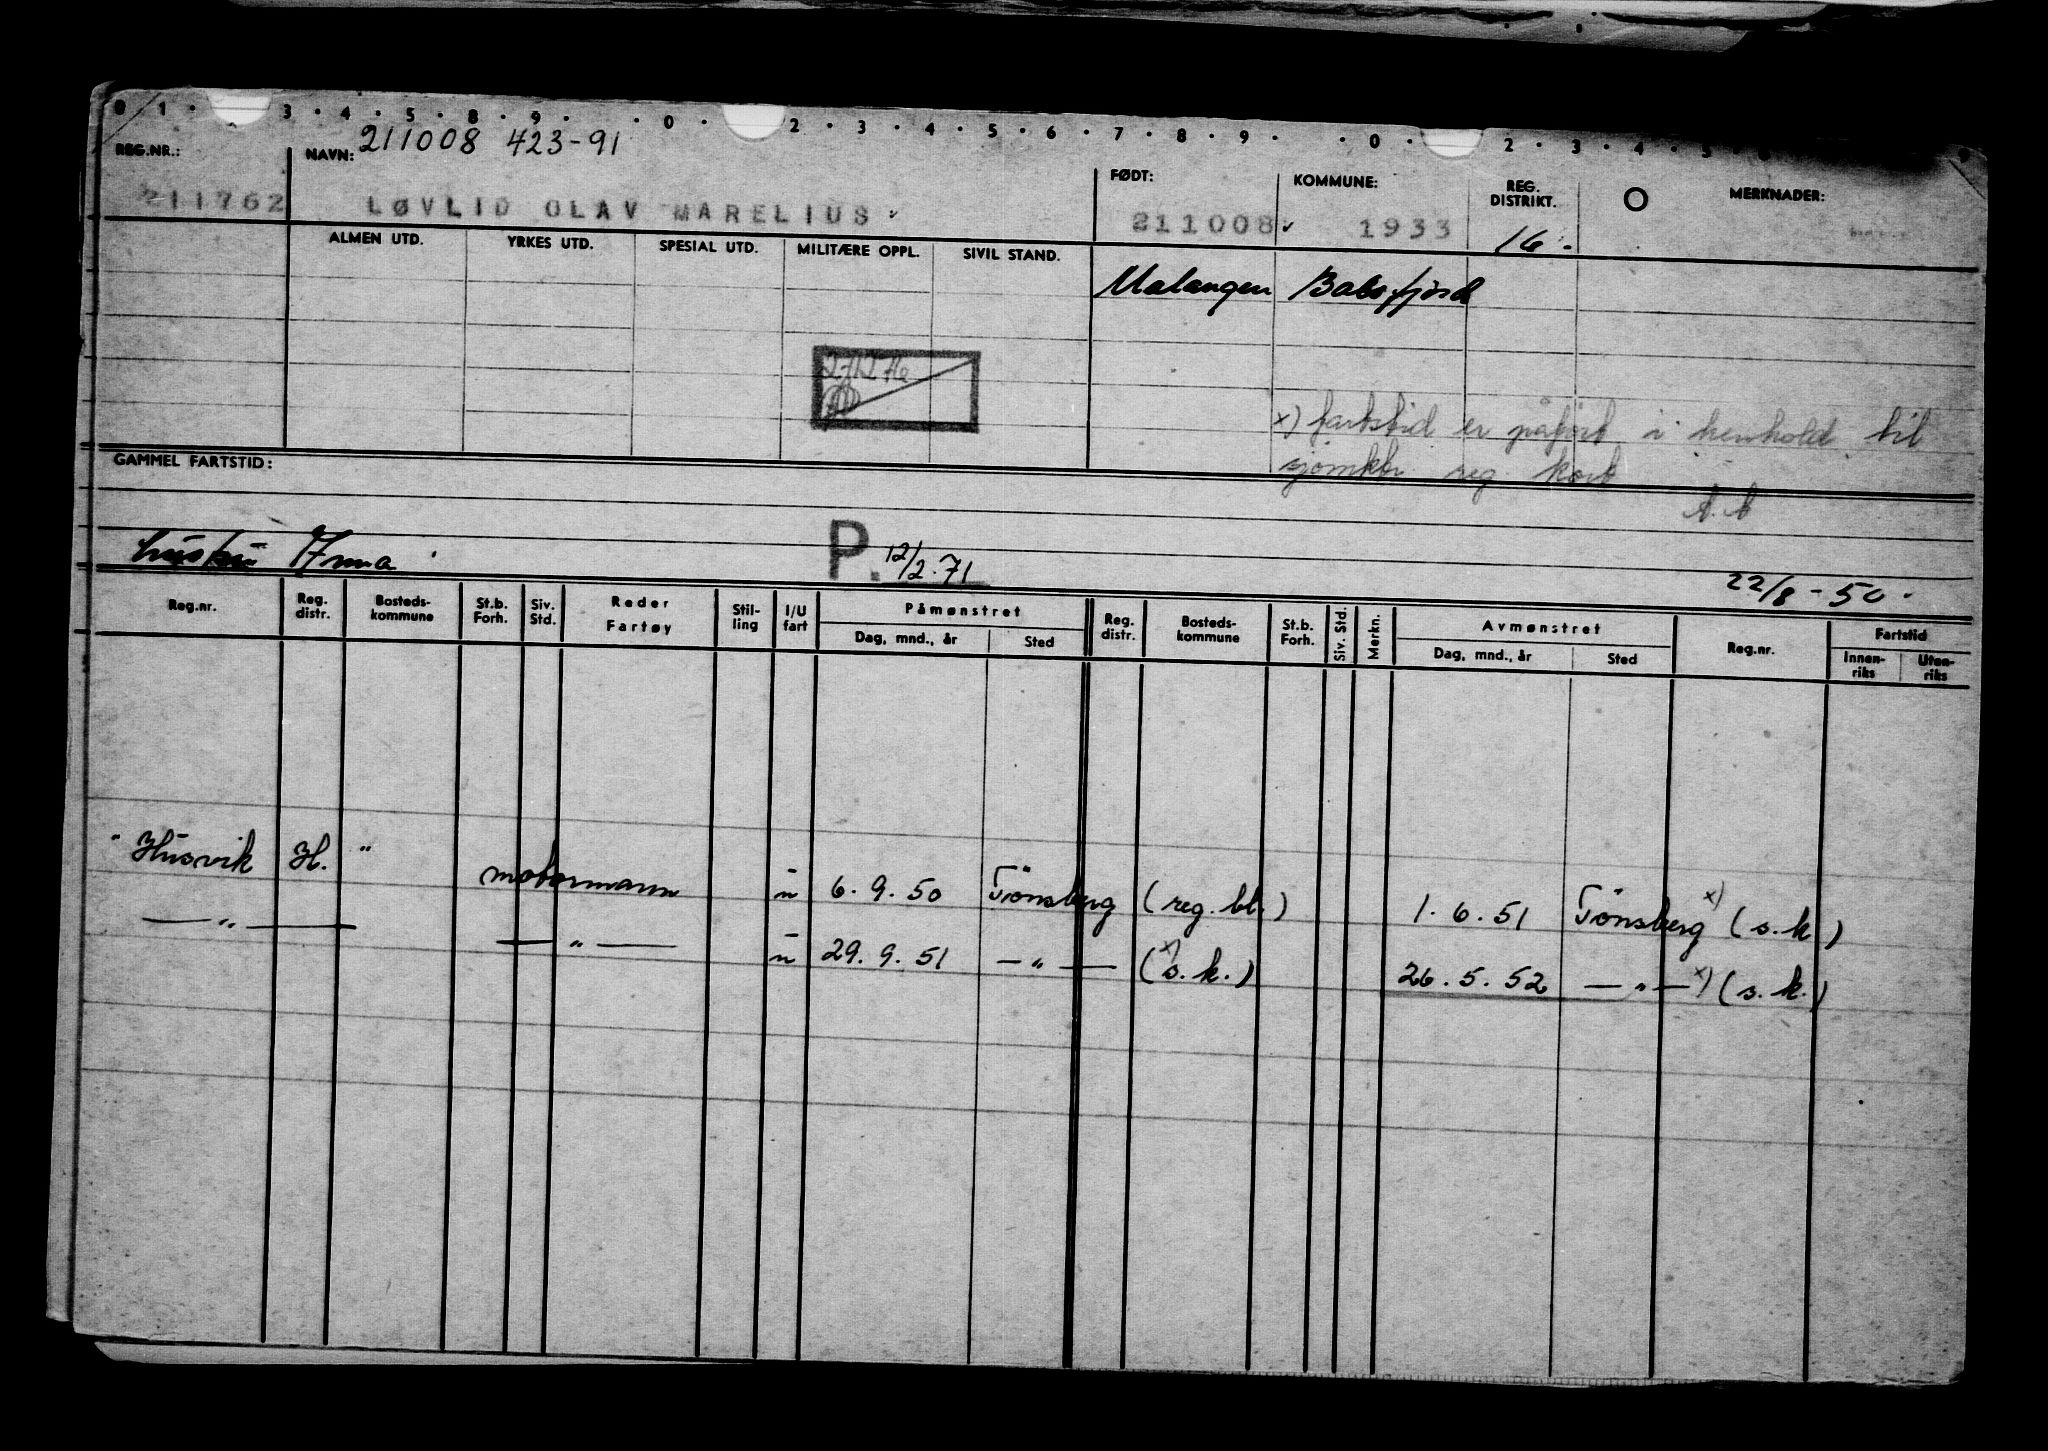 0 · 1 · 3 · 4 · 5 · 8 · 9 · · 0 · 2 · 3 · 4 · 5 · 6 · 7 · 8 · 9 · · 0 · 2 · 3 · 4 · 5
REG.NR.: NAVN: 211008 423-91 FØDT: KOMMUNE: REG. DISTRIKT. O MERKNADER:
211762 LØVLID OLAV MARELIUS 211008 1933 16
ALMEN UTD. YRKES UTD. SPESIAL UTD. MILITÆRE OPPL. SIVIL STAND.
Malangen Balsfjord
x) fartstid er påført i henhold til
sjømktr. reg. kort
GAMMEL FARTSTID:
hustru Irma P. 12/2.71 22/8-50.
Reg.nr. Reg. distr. Bosteds-kommune St.b. Forh. Siv. Std. Reder Fartøy Stil-ling I/U fart Påmønstret Reg. distr. Bosteds-kommune St.b. Forh. Siv. Std. Merkn. Avmønstret Reg.nr. Fartstid
Dag, mnd., år Sted Dag, mnd., år Sted Innen-riks Uten-riks
" Husvik H. " motormann u 6.9.50 Tönsberg (reg. bl.) 1.6.51 Tönsberg x) (s.k.)
— " — — " — u 29.9.51 — " — x) (s.k.) 26.5.52 — " — x) (s.k.)